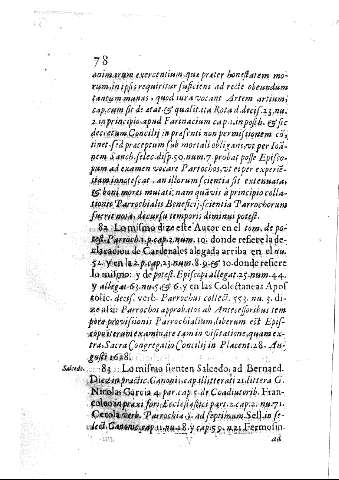 78
animarum exercentium, que præter honestatem mo-
rum, in ipsis requiritur sufficiens ad recte obeundum
tantum munus, quod iura vocant Artem artium,
cap. cum sit de ætat. & qualit. ita Rota d. decis. 23. nu.
2. in principio, apud Farinacium cap. 1. in posth. & sic
decretum Concilij in presenti non permissionem cō-
tinet, sed præceptum sub mortali obligans, vt per Ioā-
nem à anch. selec. disp. 59. num. 7. probat posse Episco-
pum ad examen vocare Parochos, vt esper experiē-
tiam innotescat, an illorum scientia sit extenuata,
& boni mores mutati; nam quavis à principio colla-
tionis Parochialis Beneficij scientia Parochorum
fuerit nota, decursu temporis diminui potest.
82 Lo mismo dize este Autor en el tom. de po-
test. Parroch. 1. p. cap. 2. num. 10. donde refiere la de-
claracion de Cardenales alegada arriba en el nu.
52. y en la 2. p. cap. 23. num. 8. & 10. donde refiere
lo mismo: y de potest. Episcopi allegat. 25. num. 44.
y allegat. 63. nu. 5. & 6. y en las Coletaneas Apos
tolic. decis. verb. Parrochus collect. 553. nu. 3. di-
ze assi: Parrochos approbatos ab Antecessoribus tem
pore provisionis Parrochialium, liberum est Epis-
copo iterum examinare tam in visitatione, quam ex-
tra. Sacra Congregatio Concilij in Placent. 28. Au-
gusti 1628.
Salcedo. 83 Lo mismo sienten Salcedo, ad Bernard.
Diez in practic. Canonic. cap. illitterati 21. littera G.
Nicolas Garcia 4. par. cap. 5. de Coadiutorib. Fran-
colino in praxi fori Ecclesiastici part. 2. cap. 2. nu. 71.
Cerola verb. Parrochia §. ad septimum. Sell. in se-
lect. Canonic. cap. 11. nu. 28. y cap. 59. n. 21. Fermosin.
ad